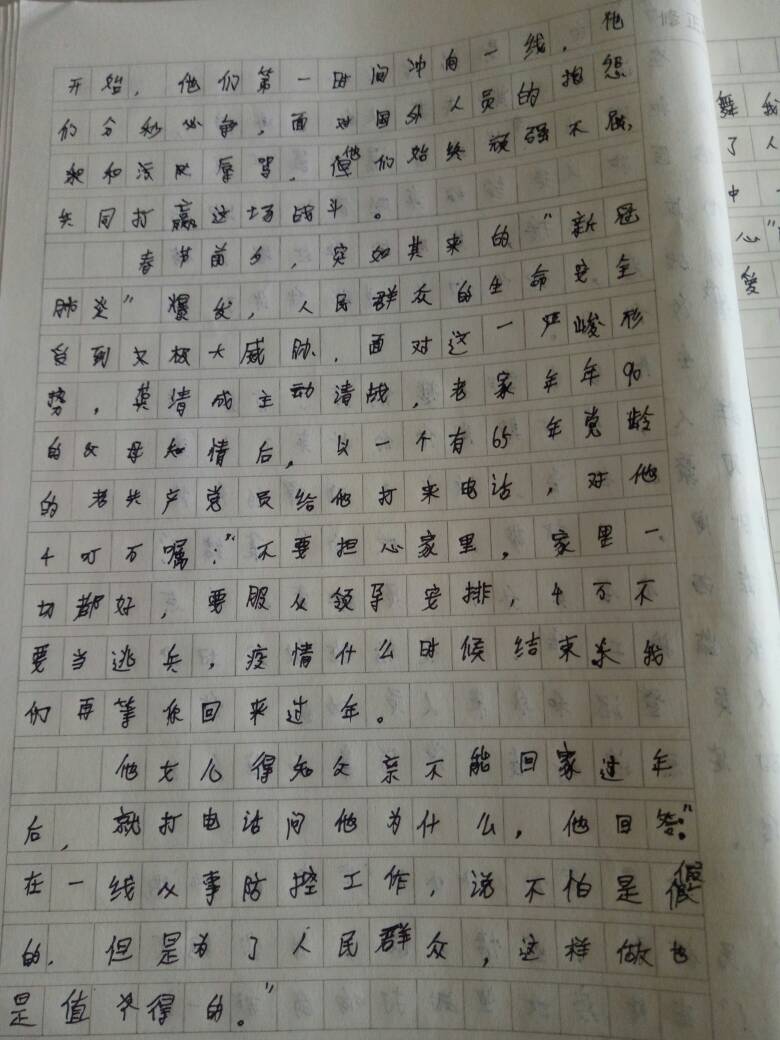 开始，他们第一时间冲向一线，他
们分秒必争，面对国外人员的抱怨
和 辱骂，但他们始终顽强不屈，
共同打赢这场战斗。
春节前夕，突如其来的"新冠
肺炎"爆发，人民群众的生命安全
受到极大威胁，面对这一严峻形
势，莫清成主动请战，老家年年90
的父母知情后，以一个有65年党龄
的老共产党员给他打来电话，对他
4叮万嘱："不要担心家里，家里一
切都好，要服从领导安排，4万不
要当逃兵，疫情什么时候结束 我
们再等你回来过年。
他女儿得知父亲不能回家过年
后，就打电话问他为什么，他回答："
在一线从事防控工作，说不怕是假
的，但是为了人民群众，这样做也
是值得的。"
舞我
了人
中一
心"
爱